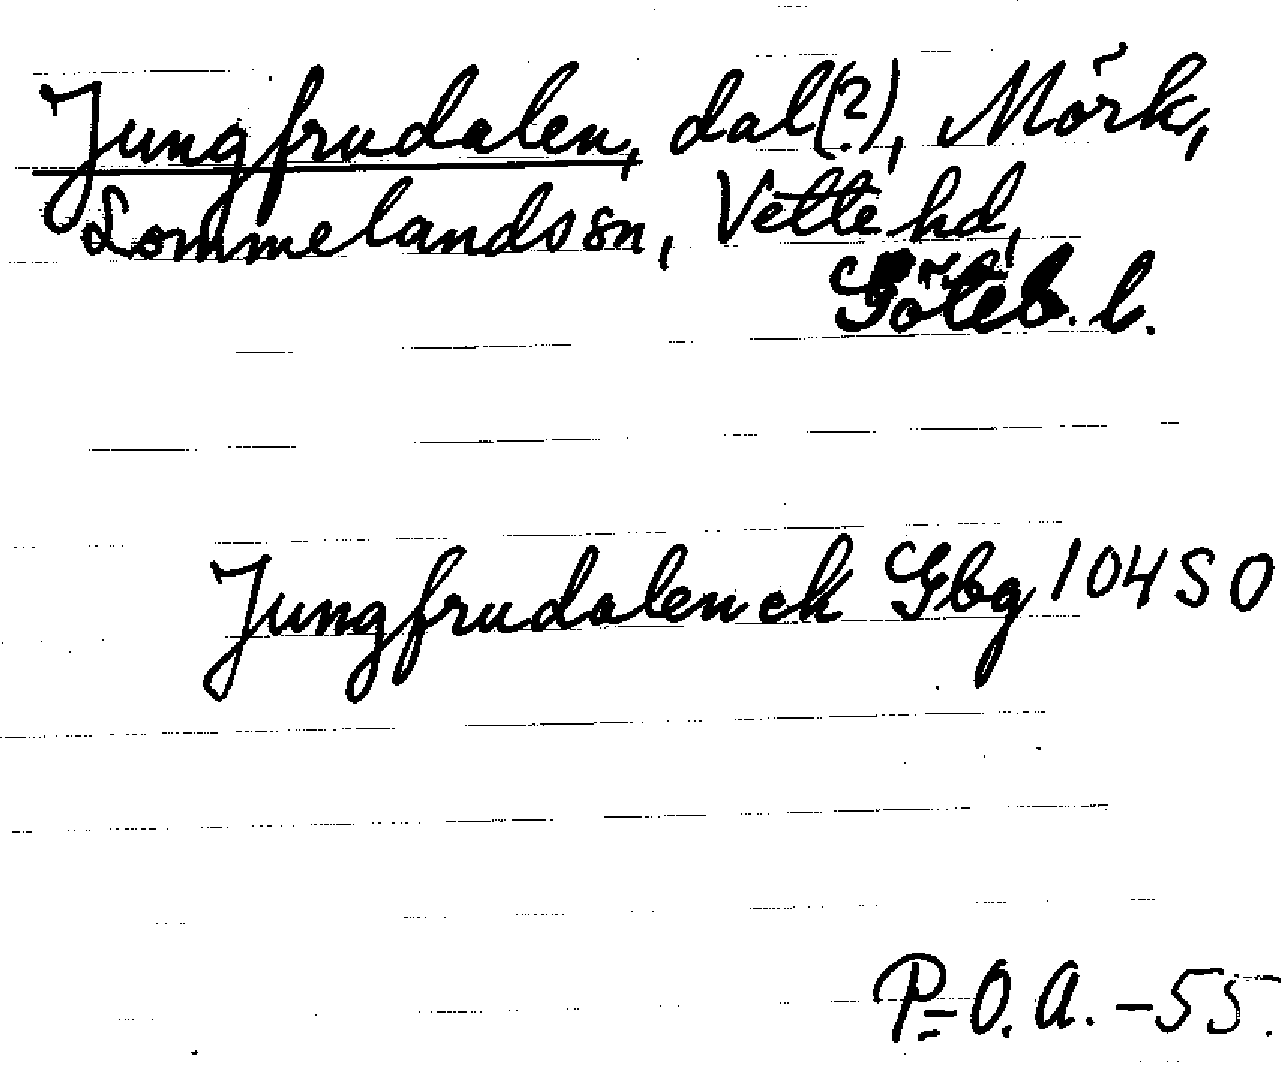 Jungfrudalen, dal(?), Mörk,
Lommelands sn, Vette hd,
Göteb. l.
Jungfrudalen ek Gbg 104 S O
P-O. A. -55.